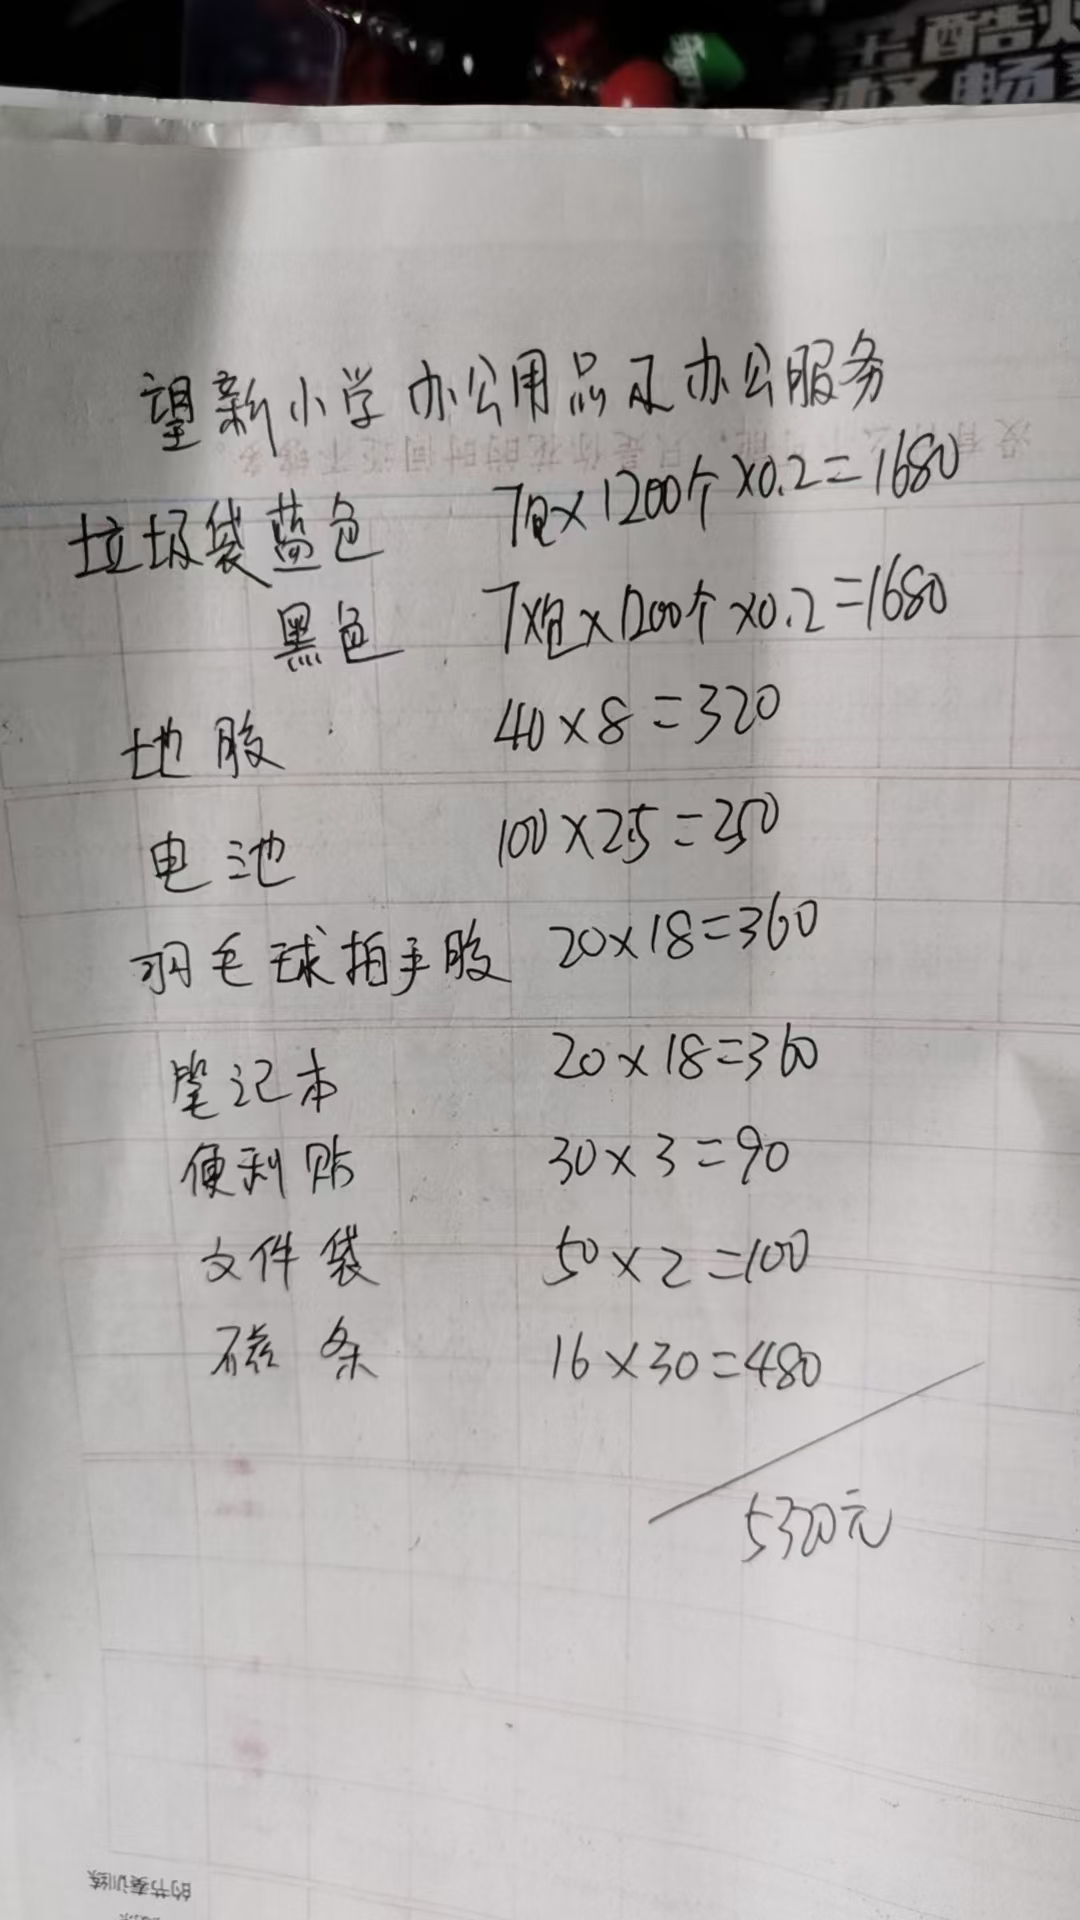 望新小学办公用品及办公服务
垃圾袋蓝色 7包×1200个×0.2=1680
黑色 7×包×1200个×0.2=1680
地胶 40×8=320
电池 100×2.5=250
羽毛球拍手胶 20×18=360
笔记本 20×18=360
便利贴 30×3=90
文件袋 50×2=100
磁条 16×30=480
5320元
的节奏训练